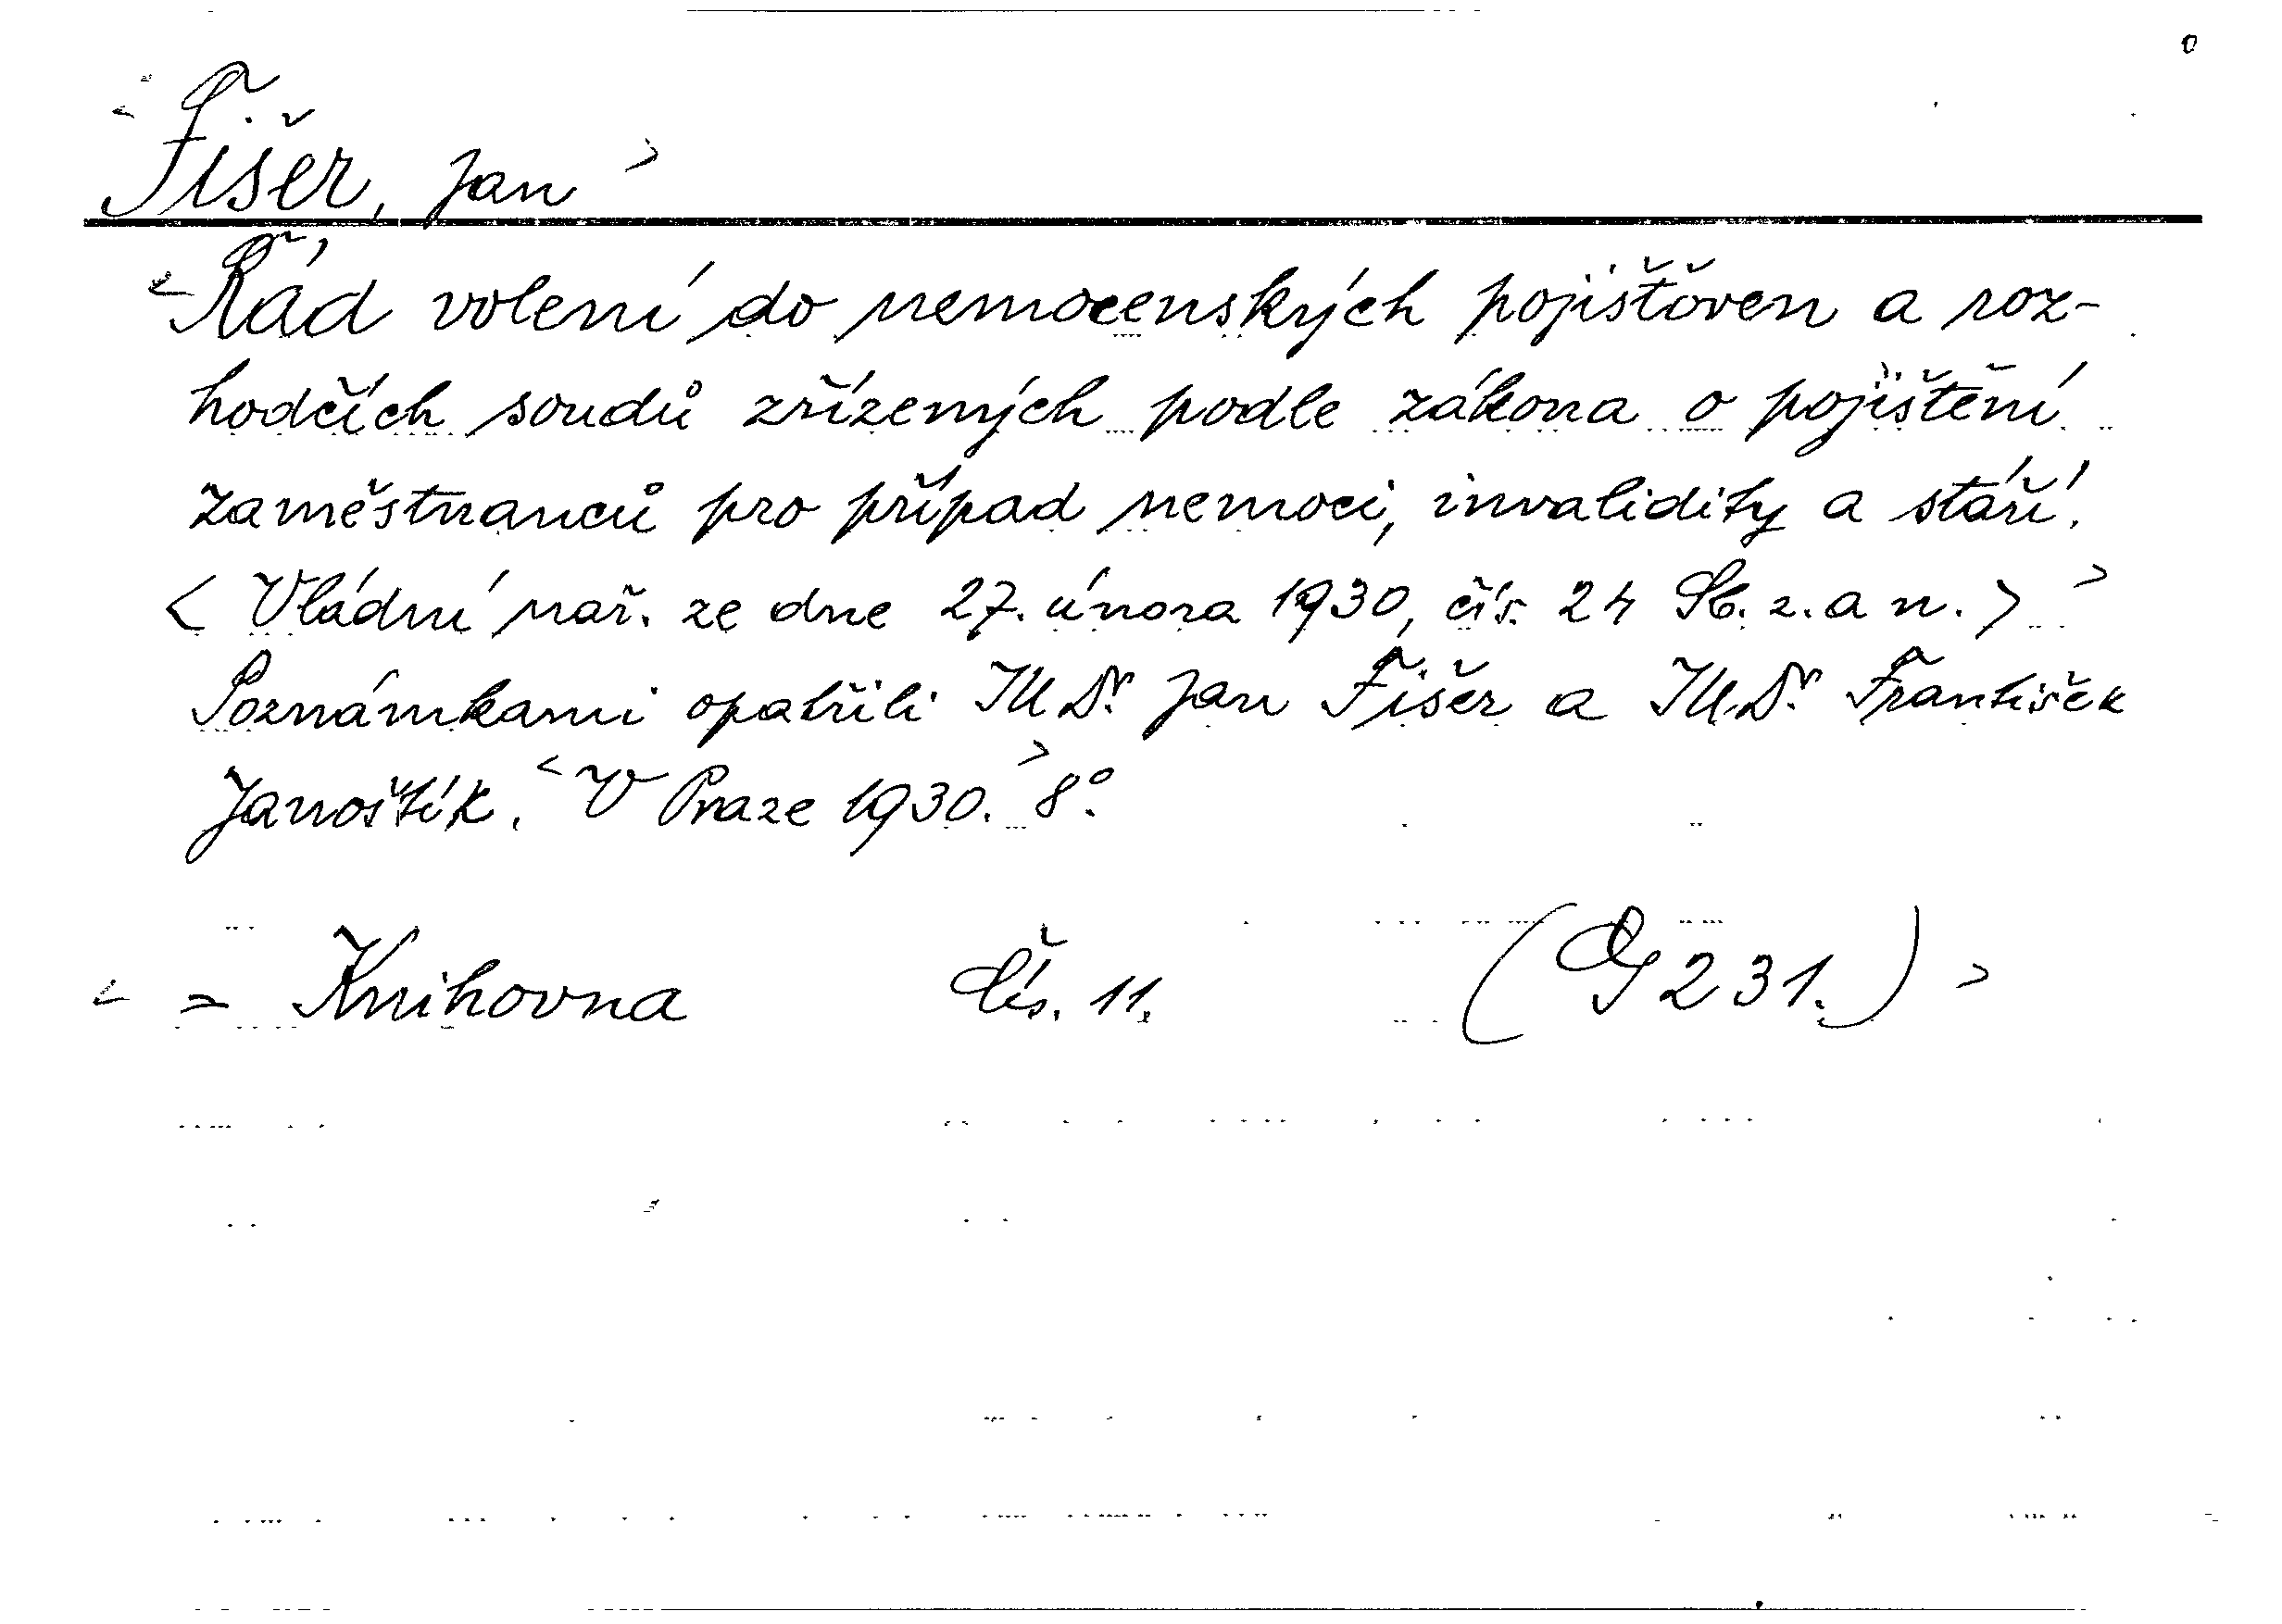 < Fišer, Jan >
< Řád volení do nemocenských pojišťoven a roz-
hodčích soudů zřízených podle zákona o pojištění
zaměstnanců pro případ nemoci, invalidity a stáří.
< Vládní nař. ze dne 27. února 1930, čís. 24 Sb. z. a n. > >
Poznámkami opatřili JUDr. Jan Fišer a JU.Dr. František
Janoštík. < V Praze 1930. > 8°.
< = Knihovna Čís. 11. (G 231.) >